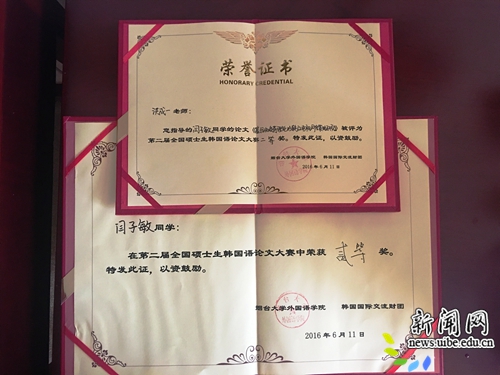 荣誉证书
HONORARY CREDENTIAL
老师:
您指导的闫子敏同学的论文 被评为
第二届全国硕士生韩国语论文大赛二等奖。特发此证,以资鼓励。
烟台大学外国语学院 韩国国际交流财团
2016年6月11日
闫子敏同学:
在第二届全国硕士生韩国语论文大赛中荣获 贰等 奖。
特发此证,以资鼓励。
烟台大学外国语学院 韩国国际交流财团
2016年6月11日
新闻网
news.uibe.edu.cn